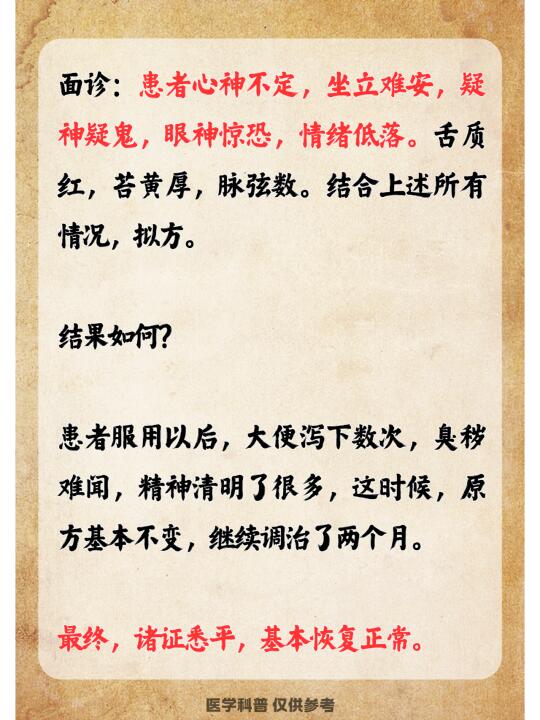 面诊：患者心神不定，坐立难安，疑
神疑鬼，眼神惊恐，情绪低落。舌质
红，苔黄厚，脉弦数。结合上述所有
情况，拟方。
结果如何？
患者服用以后，大便泻下数次，臭秽
难闻，精神清明了很多，这时候，原
方基本不变，继续调治了两个月。
最终，诸证悉平，基本恢复正常。
医学科普 仅供参考